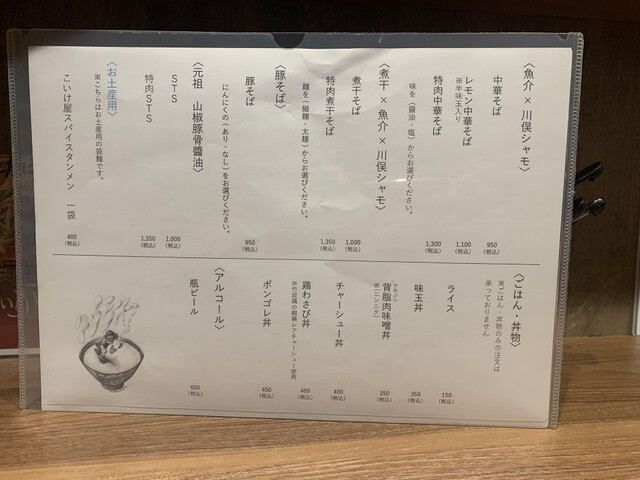 〈魚介 × 川俣シャモ〉
中華そば
950
(税込)
レモン中華そば
※半味玉入り
1,100
(税込)
特肉中華そば
1,300
(税込)
味を（醤油・塩）からお選びください。
〈煮干 × 魚介 × 川俣シャモ〉
煮干そば
1,000
(税込)
特肉煮干そば
1,350
(税込)
麺を（細麺・太麺）からお選びください。
〈豚そば〉
豚そば
950
(税込)
にんにくの（あり・なし）をお選びください。
〈元祖 山椒豚骨醬油〉
STS
1,000
(税込)
特肉STS
1,350
(税込)
〈お土産用〉
※こちらはお土産用の袋麺です。
こいけ屋スパイスタンメン 一袋
400
(税込)
〈ごはん・丼物〉
※ごはん・丼物のみの注文は
承っておりません
ライス
150
(税込)
味玉丼
350
(税込)
背脂肉味噌丼
せあぶら
※(ニンニク)
350
(税込)
チャーシュー丼
400
(税込)
鶏わさび丼
400
(税込)
ボンゴレ丼
450
(税込)
〈アルコール〉
瓶ビール
650
(税込)